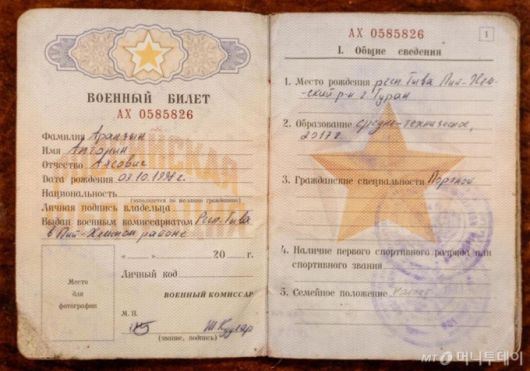 ВОЕННЫЙ БИЛЕТ
АХ 0585826
Фамилия
Имя
Отчество
Дата рождения
Национальность
(заполняется по желанию гражданина)
Личная подпись владельца
Выдан военным комиссариатом Респ. Тыва
в Пий-Хемском районе
Место
для
фотографии
«__» ______ 20 __ г.
Личный код
ВОЕННЫЙ КОМИССАР
М. П.
(звание, подпись)
АХ 0585826
1
I. Общие сведения
1. Место рождения респ. Тыва Пий-Хем-
ский р-н г. Туран
2. Образование средне-техническое,
2017г.
3. Гражданские специальности Портной
4. Наличие первого спортивного разряда или
спортивного звания
5. Семейное положение
МТ 머니투데이